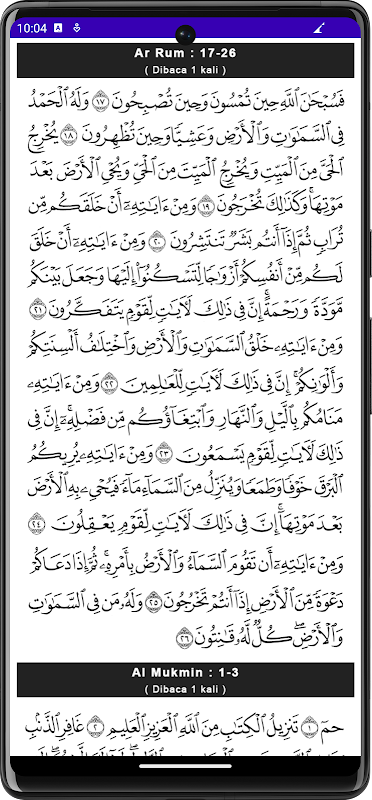 10:04
Ar Rum : 17-26
( Dibaca 1 kali )
فَسُبْحَـٰنَ ٱللَّهِ حِينَ تُمْسُونَ وَحِينَ تُصْبِحُونَ ١٧ وَلَهُ ٱلْحَمْدُ
فِى ٱلسَّمَـٰوَٰتِ وَٱلْأَرْضِ وَعَشِيًّا وَحِينَ تُظْهِرُونَ ١٨ يُخْرِجُ
ٱلْحَىَّ مِنَ ٱلْمَيِّتِ وَيُخْرِجُ ٱلْمَيِّتَ مِنَ ٱلْحَىِّ وَيُحْىِ ٱلْأَرْضَ بَعْدَ
مَوْتِهَا ۚ وَكَذَٰلِكَ تُخْرَجُونَ ١٩ وَمِنْ ءَايَـٰتِهِۦٓ أَنْ خَلَقَكُم مِّن
تُرَابٍ ثُمَّ إِذَآ أَنتُم بَشَرٌ تَنتَشِرُونَ ٢٠ وَمِنْ ءَايَـٰتِهِۦٓ أَنْ خَلَقَ
لَكُم مِّنْ أَنفُسِكُمْ أَزْوَٰجًا لِّتَسْكُنُوٓا۟ إِلَيْهَا وَجَعَلَ بَيْنَكُم
مَّوَدَّةً وَرَحْمَةً ۚ إِنَّ فِى ذَٰلِكَ لَـَٔايَـٰتٍ لِّقَوْمٍ يَتَفَكَّرُونَ ٢١
وَمِنْ ءَايَـٰتِهِۦ خَلْقُ ٱلسَّمَـٰوَٰتِ وَٱلْأَرْضِ وَٱخْتِلَـٰفُ أَلْسِنَتِكُمْ
وَأَلْوَٰنِكُمْ ۚ إِنَّ فِى ذَٰلِكَ لَـَٔايَـٰتٍ لِّلْعَـٰلِمِينَ ٢٢ وَمِنْ ءَايَـٰتِهِۦ
مَنَامُكُم بِٱلَّيْلِ وَٱلنَّهَارِ وَٱبْتِغَآؤُكُم مِّن فَضْلِهِۦٓ ۚ إِنَّ فِى
ذَٰلِكَ لَـَٔايَـٰتٍ لِّقَوْمٍ يَسْمَعُونَ ٢٣ وَمِنْ ءَايَـٰتِهِۦ يُرِيكُمُ
ٱلْبَرْقَ خَوْفًا وَطَمَعًا وَيُنَزِّلُ مِنَ ٱلسَّمَآءِ مَآءً فَيُحْىِۦ بِهِ ٱلْأَرْضَ
بَعْدَ مَوْتِهَآ ۚ إِنَّ فِى ذَٰلِكَ لَـَٔايَـٰتٍ لِّقَوْمٍ يَعْقِلُونَ ٢٤
وَمِنْ ءَايَـٰتِهِۦٓ أَن تَقُومَ ٱلسَّمَآءُ وَٱلْأَرْضُ بِأَمْرِهِۦ ۚ ثُمَّ إِذَا دَعَاكُمْ
دَعْوَةً مِّنَ ٱلْأَرْضِ إِذَآ أَنتُمْ تَخْرُجُونَ ٢٥ وَلَهُۥ مَن فِى ٱلسَّمَـٰوَٰتِ
وَٱلْأَرْضِ ۖ كُلٌّ لَّهُۥ قَـٰنِتُونَ ٢٦
Al Mukmin : 1-3
( Dibaca 1 kali )
حمٓ ١ تَنزِيلُ ٱلْكِتَـٰبِ مِنَ ٱللَّهِ ٱلْعَزِيزِ ٱلْعَلِيمِ ٢ غَافِرِ ٱلذَّنۢبِ